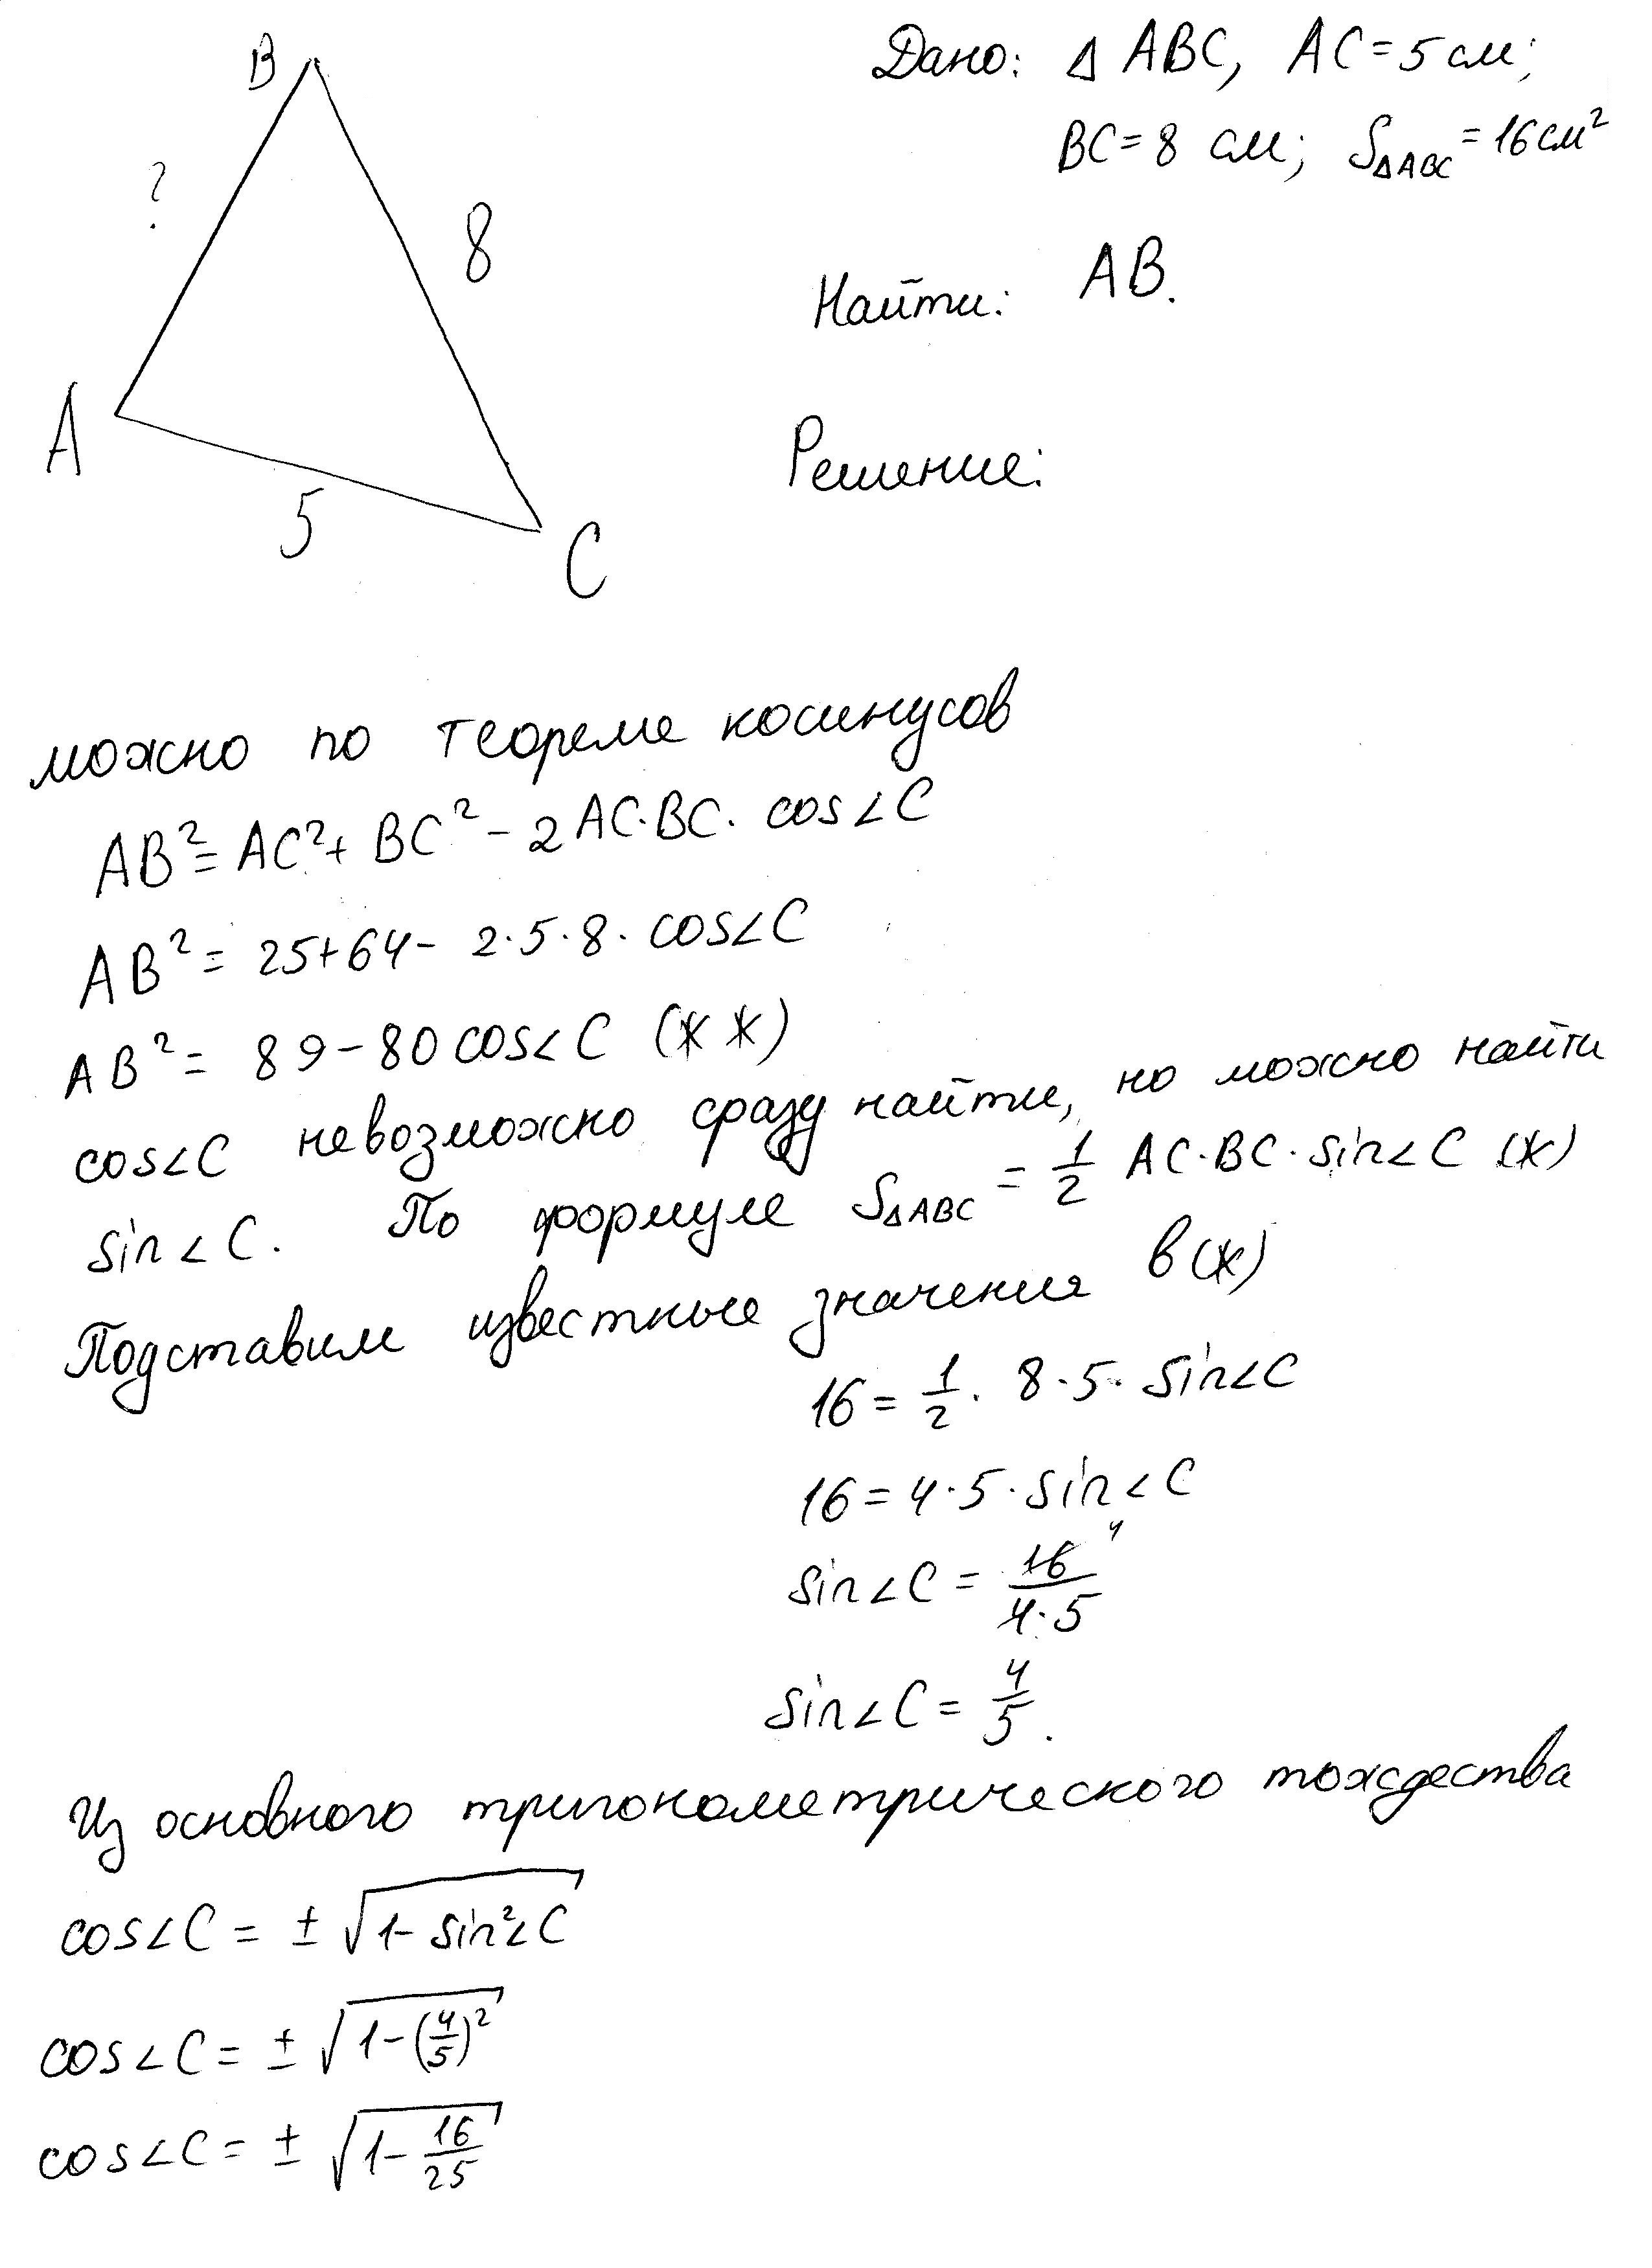 B
Дано: Δ ABC, AC = 5 см;
BC = 8 см; S_ΔABC = 16 см²
?
8
Найти: AB.
A
Решение:
5
C
можно по теореме косинусов
AB² = AC² + BC² - 2 AC·BC · cos∠C
AB² = 25+64 - 2·5·8· cos∠C
AB² = 89 - 80 cos∠C (**)
cos∠C невозможно сразу найти, но можно найти
sin∠C. По формуле S_ΔABC = 1/2 AC·BC·sin∠C (*)
Подставим известные значения в (*)
16 = 1/2 · 8·5· sin∠C
16 = 4·5·sin∠C
sin∠C = 16 4 / 4·5
sin∠C = 4/5.
Из основного тригонометрического тождества
cos∠C = ± √(1 - sin²∠C)
cos∠C = ± √(1 - (4/5)²)
cos∠C = ± √(1 - 16/25)